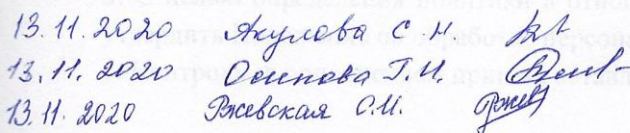 13.11.2020 Акулова С. Н.
13.11.2020 Осипова Г.И.
13.11.2020 Ржевская С.И.